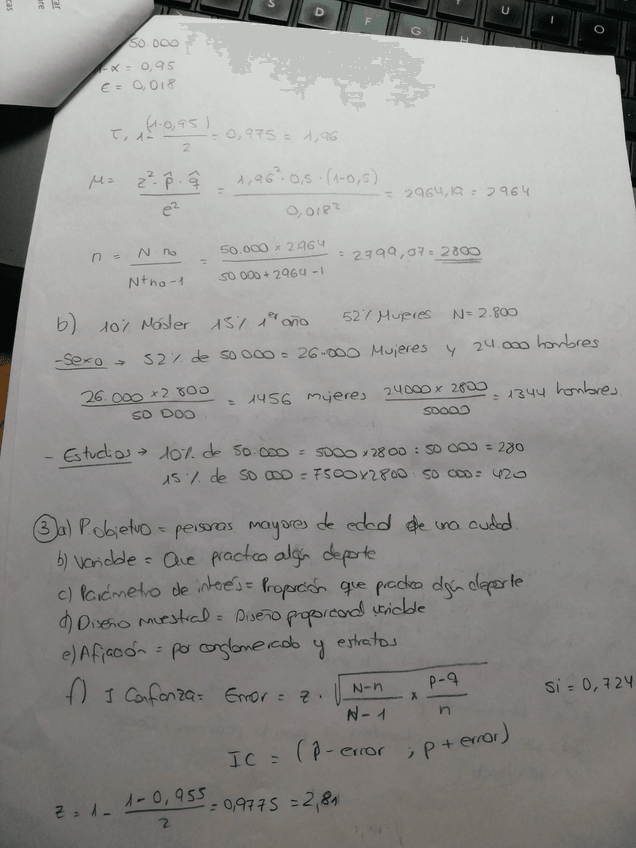 50 000
1-α = 0,95
e = 0,018
τ, 1- (1-0,95) / 2 = 0,975 = 1,96
μ = z² · p̂ · q̂ / e² = 1,96² · 0,5 · (1-0,5) / 0,018² = 2964,19 = 2964
n = N no / N+no-1 = 50.000 x 2964 / 50 000 + 2964 - 1 = 2799,07 = 2800
b) 10% Máster 15% 1er año 52% Mujeres N = 2.800
- Sexo → 52% de 50 000 = 26.000 Mujeres y 24.000 hombres
26.000 x 2 800 / 50 000 = 1456 mujeres 24000 x 2800 / 50000 = 1344 hombres
- Estudios → 10% de 50.000 = 5000 x 2800 : 50 000 = 280
15% de 50 000 = 7500 x 2800 : 50 000 = 420
3 a) P objetivo = personas mayores de edad de una ciudad
b) Variable = Que practica algún deporte
c) Parámetro de interés = Proporción que practica algún deporte
d) Diseño muestral = Diseño proporcional variable
e) Afijación = por conglomerado y estratos
f) I Confianza = Error = z · √ N-n / N-1 x p-q / n Si = 0,724
IC = (p̂ - error ; p + error)
z = 1 - 1-0,955 / 2 = 0,9775 = 2,81